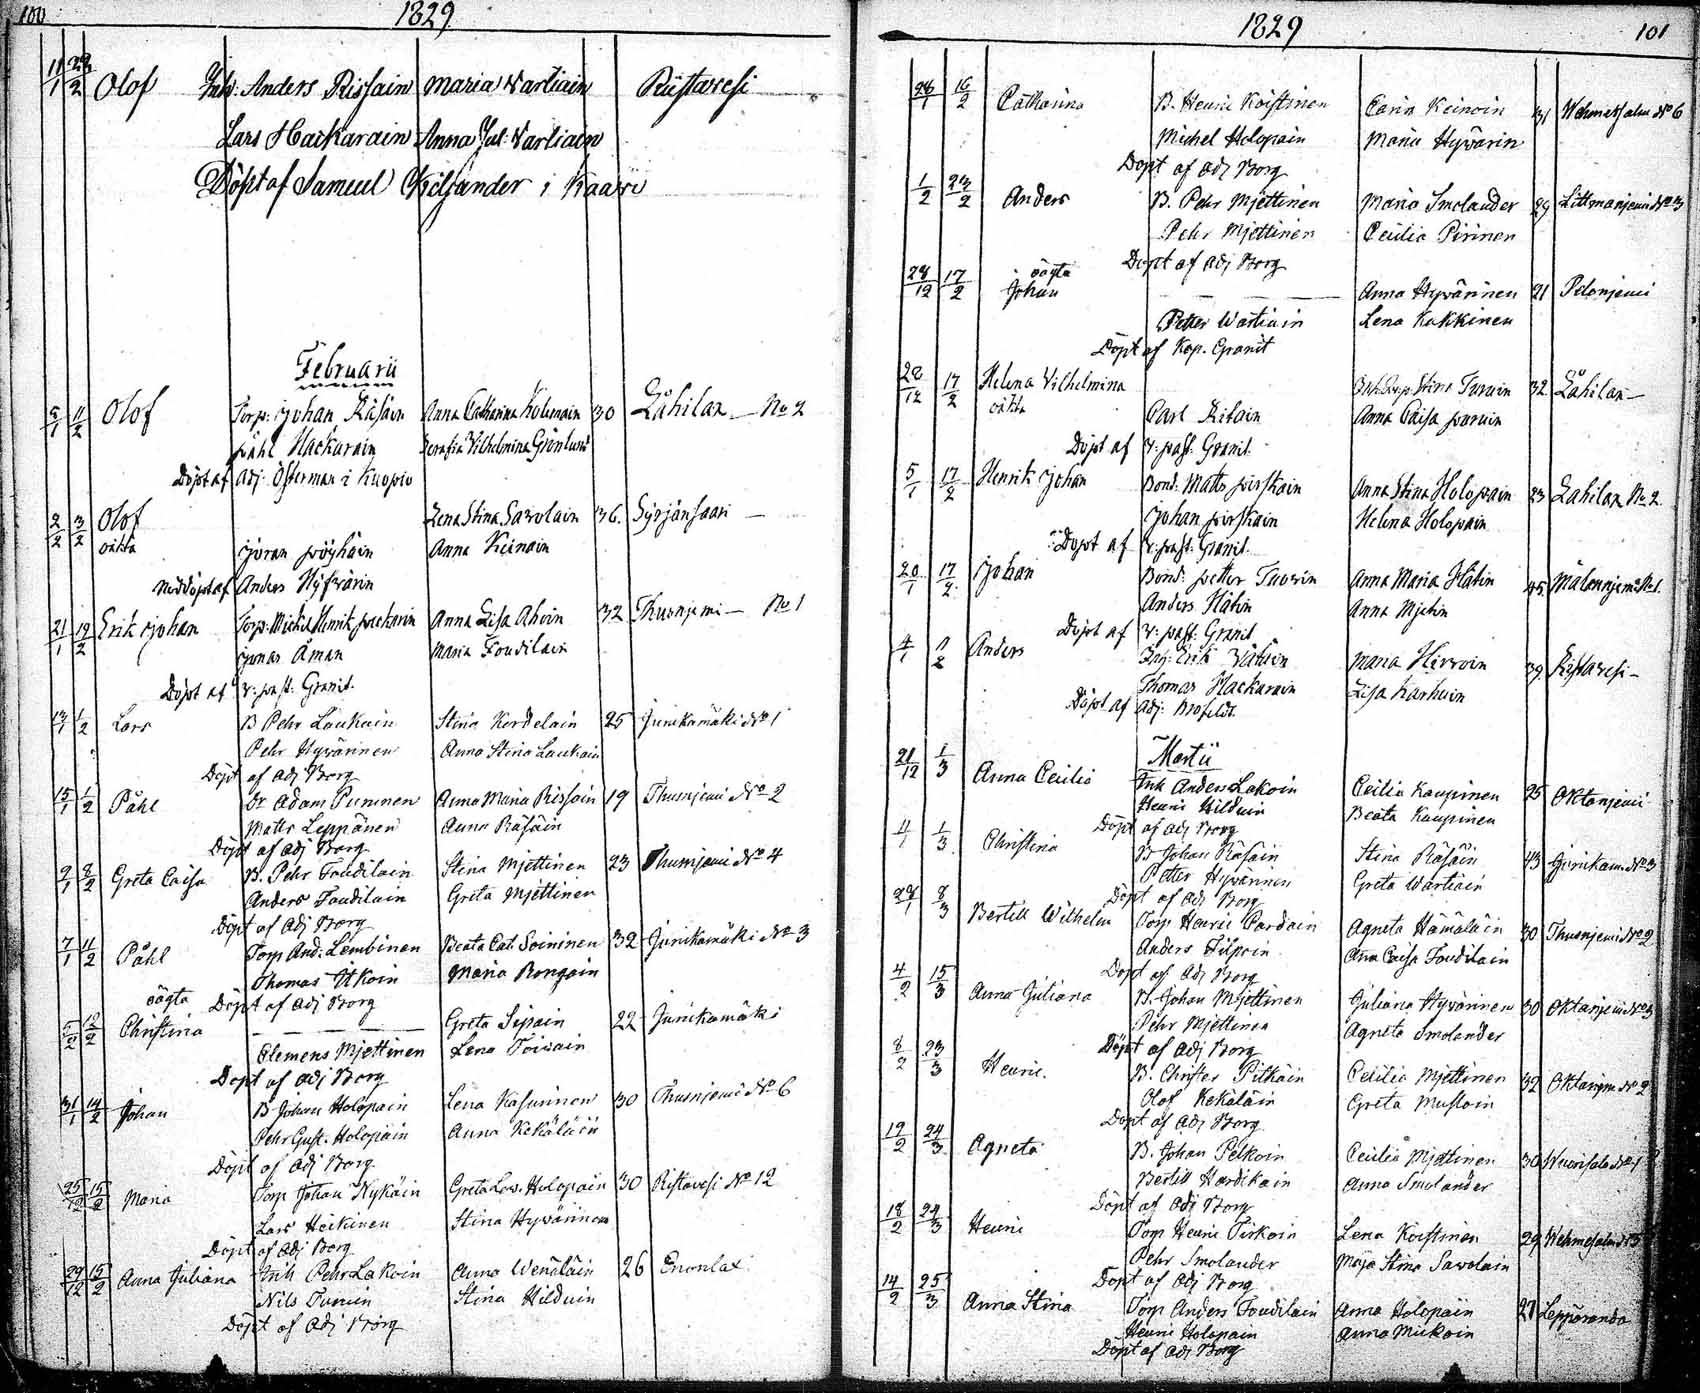 100
1829
11/1 22/2 Olof Inh: Anders Rissain Maria Wartiain Ristavesi
Lars Hackarain Anna Jul: Wartiain
Döpt af Samuel Kiljander i Kaavi
Februarii
5/1 11/2 Olof Torp: Johan Räsäin Anna Catharina Kolemain 30 Låhilax No 2
Påhl Hackarain Serafia Wilhelmina Grönlund
Döpt af Adj: Österman i Kuopio
2/2 3/2 Olof Lena Stina Savolain 36. Syrjänsaari
oäkta Jöran Pöyhöin Anna Keinain
Nöddöpt af Anders Hyfvärin
21/1 19/2 Erik Johan Torp: Michel Henrik Packarin Anna Lisa Ahoin 32 Thusnjemi No 1
Jonas Åman Maria Toudilain
Döpt af v: past: Granit.
13/1 1/2 Lars B Pehr Laukain Stina Kordelain 25 Junikamäki No 1
Pehr Hyvärinen Anna Stina Laukain
Döpt af Adj Borg
15/1 1/2 Påhl Dr Adam Pununen Anna Maria Rissain 19 Thusnjemi No 2
Matts Leppänen Anna Räsäin
Döpt af Adj Borg
9/1 8/2 Greta Caisa B. Pehr Toudilain Stina Mjettinen 23 Thusnjemi No 4
Anders Toudilain Greta Mjettinen
Döpt af Adj Borg
7/1 11/2 Påhl Torp And: Lembinen Beata Cat. Soininen 32 Junikamäki No 3
Thomas Itkoin Maria Rongain
Döpt af Adj Borg
oägta
5/2 12/2 Christina Greta Sipain 22 Junikamäki
Clemens Mjettinen Lena Toivain
Döpt af Adj Borg
31/1 14/2 Johan B Johan Holopain Lena Kasurinen 30 Thusnjemi No 6
Pehr Gust. Holopain Anna Kekäläin
Döpt af Adj Borg
25/12 15/2 Maria Torp Johan Nykäin Greta Lov. Holopain 30 Ristavesi No 12
Lars Heikinen Stina Hyvärinen
Döpt af Adj Borg
29/12 15/2 Anna Juliana Inh Pehr Lakoin Anna Wenäläin 26 Enonlax
Nils Turuin Stina Hilduin
Döpt af Adj Borg
1829
101
28/1 16/2 Catharina B. Henric Koistinen Carin Keinoin 31 Wehmersalmi No 6
Michel Holopain Maria Hyvärin
Döpt af Adj Borg
1/2 23/2 Anders B. Pehr Mjettinen Maria Smolander 29 Littmanjemi No 3
Pehr Mjettinen Cecilia Pirinen
Döpt af Adj Borg
oägta
28/12 17/2 Johan Anna Hyvärinen 21 Pelonjemi
Petter Wartiain Lena Kakkinen
Döpt af Kap. Granit
28/12 17/2 Helena Vilhelmina Stina Turuin 32 Låhilax
oäkta Carl Ritain Anna Caisa
Döpt af v: past: Granit.
5/1 17/2 Henrik Johan Bond: Matts Pirskain Anna Stina Holopain 23 Lahilax No 2
Johan Pirskain Helena Holopain
Döpt af v: past: Granit.
20/1 17/2 Johan Bond: Petter Tuovin Anna Maria Hätin 45 Mälönnjemi No 1.
Anders Hätin Anna Mjetin
Döpt af v: past: Granit
4/1 1/2 Anders Inh: Erik Maria Hirvoin 39 Ristavesi
Thomas Hackarain Lisa Karhuin
Döpt af Adj: Brofeldt.
Martii
21/12 1/3 Anna Cecilia Inh Anders Lakoin Cecilia Kaupinen 25 Oktanjemi
Henric Hilduin Beata Kaupinen
Döpt af Adj Borg
4/1 1/3 Christina B Johan Räsäin Stina Räsäin 43 Junikam. No 3
Petter Hyvärinen Greta Wartiain
Döpt af Adj Borg
28/1 8/3 Bertill Wilhelm Torp Henric Pardain Agneta Hämäläin 30 Thusnjemi No 2
Anders Filpoin Ana Caisa Toudilain
Döpt af Adj Borg
4/2 15/3 Anna Juliana B. Johan Mjettinen Juliana Hyvärinen 30 Oktanjemi No 3
Pehr Mjettinen Agneta Smolander
Döpt af Adj Borg
8/2 23/3 Henric. B. Christer Pitkäin Cecilia Mjettinen 32 Oktanjem No 2
Olof Kekäläin Greta Mustoin
Döpt af Adj Borg
12/2 24/3 Agneta B. Johan Pelkoin Cecilia Mjettinen 30 Wuorisalo No 1
Bertill Hardikain Anna Smolander
Döpt af Adj Borg
18/2 24/3 Henric Torp Henric Pirkoin Lena Koistinen 29 Wehmersalmi No 5
Pehr Smolander Maja Stina Savolain
Döpt af Adj Borg
14/2 25/3 Anna Stina Torp Anders Toudilain Anna Holopain 27 Lepparanda
Henric Holopain Anna Miekoin
Döpt af Adj Borg